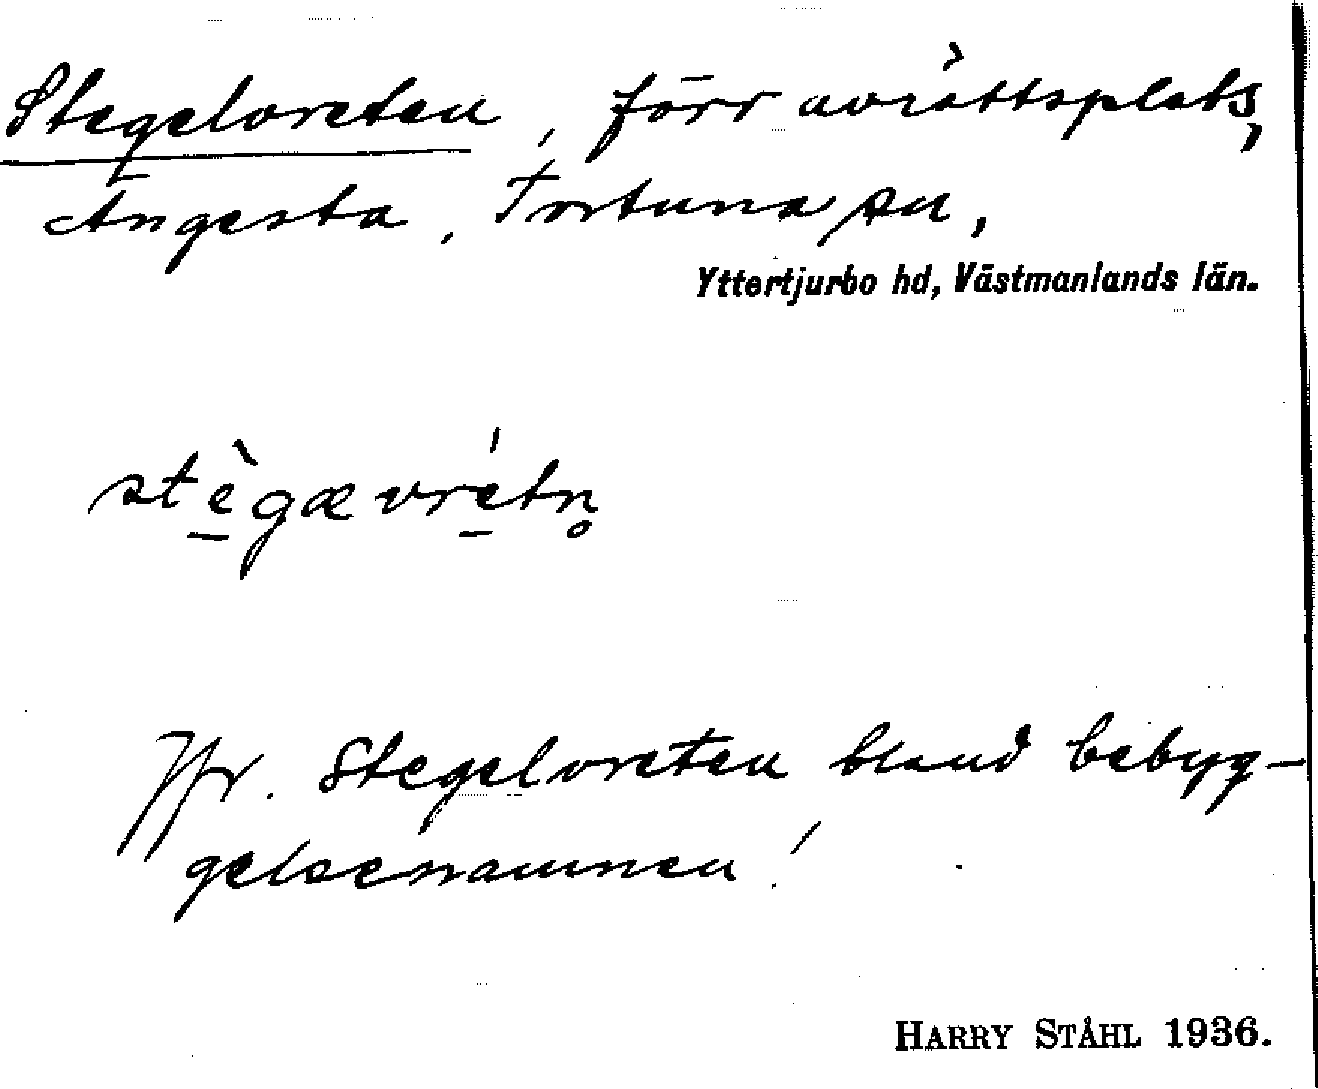 Stegelvreten, förr avrättsplats,
Ängesta, Fortuna sn,
Yttertjurbo hd, Västmanlands län.
stè̲gævré̲tn̥
Jfr. Stegelvreten bland bebyg-
gelsenamnen!
HARRY STÅHL 1936.